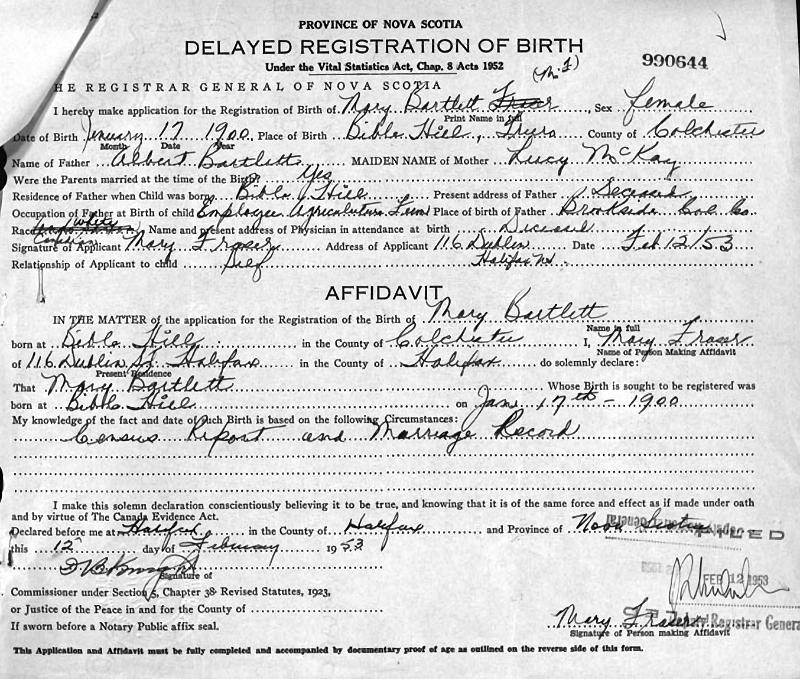 PROVINCE OF NOVA SCOTIA
DELAYED REGISTRATION OF BIRTH
Under the Vital Statistics Act, Chap. 8 Acts 1952
990644
HE REGISTRAR GENERAL OF NOVA SCOTIA
I hereby make application for the Registration of Birth of Mary Bartlett Fraser Sex female
Print Name in full
Date of Birth January 17 1900 Place of Birth Bible Hill, Truro County of Colchester
Month Date Year
Name of Father Albert Bartlett MAIDEN NAME of Mother Lucy McKay
Were the Parents married at the time of the Birth Yes
Residence of Father when Child was born Bible Hill Present address of Father Deceased
Occupation of Father at Birth of child Employee Agriculture Place of birth of Father Brookside Col. Co.
Racial White Name and present address of Physician in attendance at birth Deceased
Canadian
Signature of Applicant Mary Fraser Address of Applicant 116 Dublin Date Feb 12/53
Relationship of Applicant to child Self Halifax NS.
AFFIDAVIT
IN THE MATTER of the application for the Registration of the Birth of Mary Bartlett
Name in full
born at Bible Hill in the County of Colchester I, Mary Fraser
Name of Person Making Affidavit
of 116 Dublin St. Halifax in the County of Halifax do solemnly declare:
Present Residence
That Mary Bartlett Whose Birth is sought to be registered was
born at Bible Hill on Jane 17th - 1900
My knowledge of the fact and date of such Birth is based on the following Circumstances:
Census Report and Marriage Record
I make this solemn declaration conscientiously believing it to be true, and knowing that it is of the same force and effect as if made under oath
and by virtue of The Canada Evidence Act.
Declared before me at Halifax in the County of Halifax and Province of Nova Scotia
this 12 day of February 1953
Signature of
FEB 12 1953
Commissioner under Section 5, Chapter 38 Revised Statutes, 1923,
or Justice of the Peace in and for the County of
Registrar General
If sworn before a Notary Public affix seal.
Mary Fraser
Signature of Person making Affidavit
This Application and Affidavit must be fully completed and accompanied by documentary proof of age as outlined on the reverse side of this form.